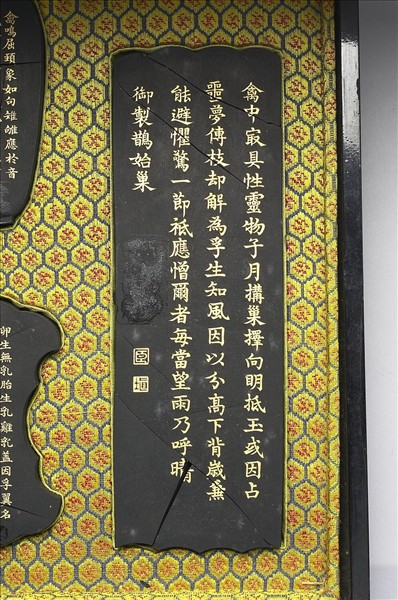 禽中㝡具性靈物子月搆巢擇向明抵玉或因占
噩夢傳枝却解為孚生知風因以分高下背歲兼
能避懼驚一節祗應憎爾者每當望雨乃呼晴
御製鵲始巢
禽鳴屈頸象如句雉雊應於音
卵生無乳胎生乳雞乳蓋因孚翼名